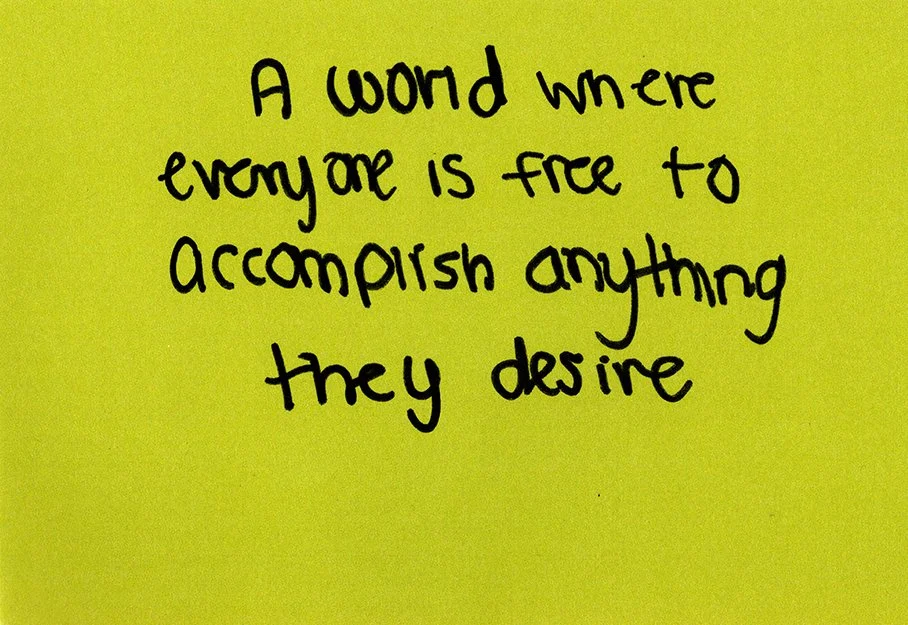 A world where
everyone is free to
accomplish anything
they desire